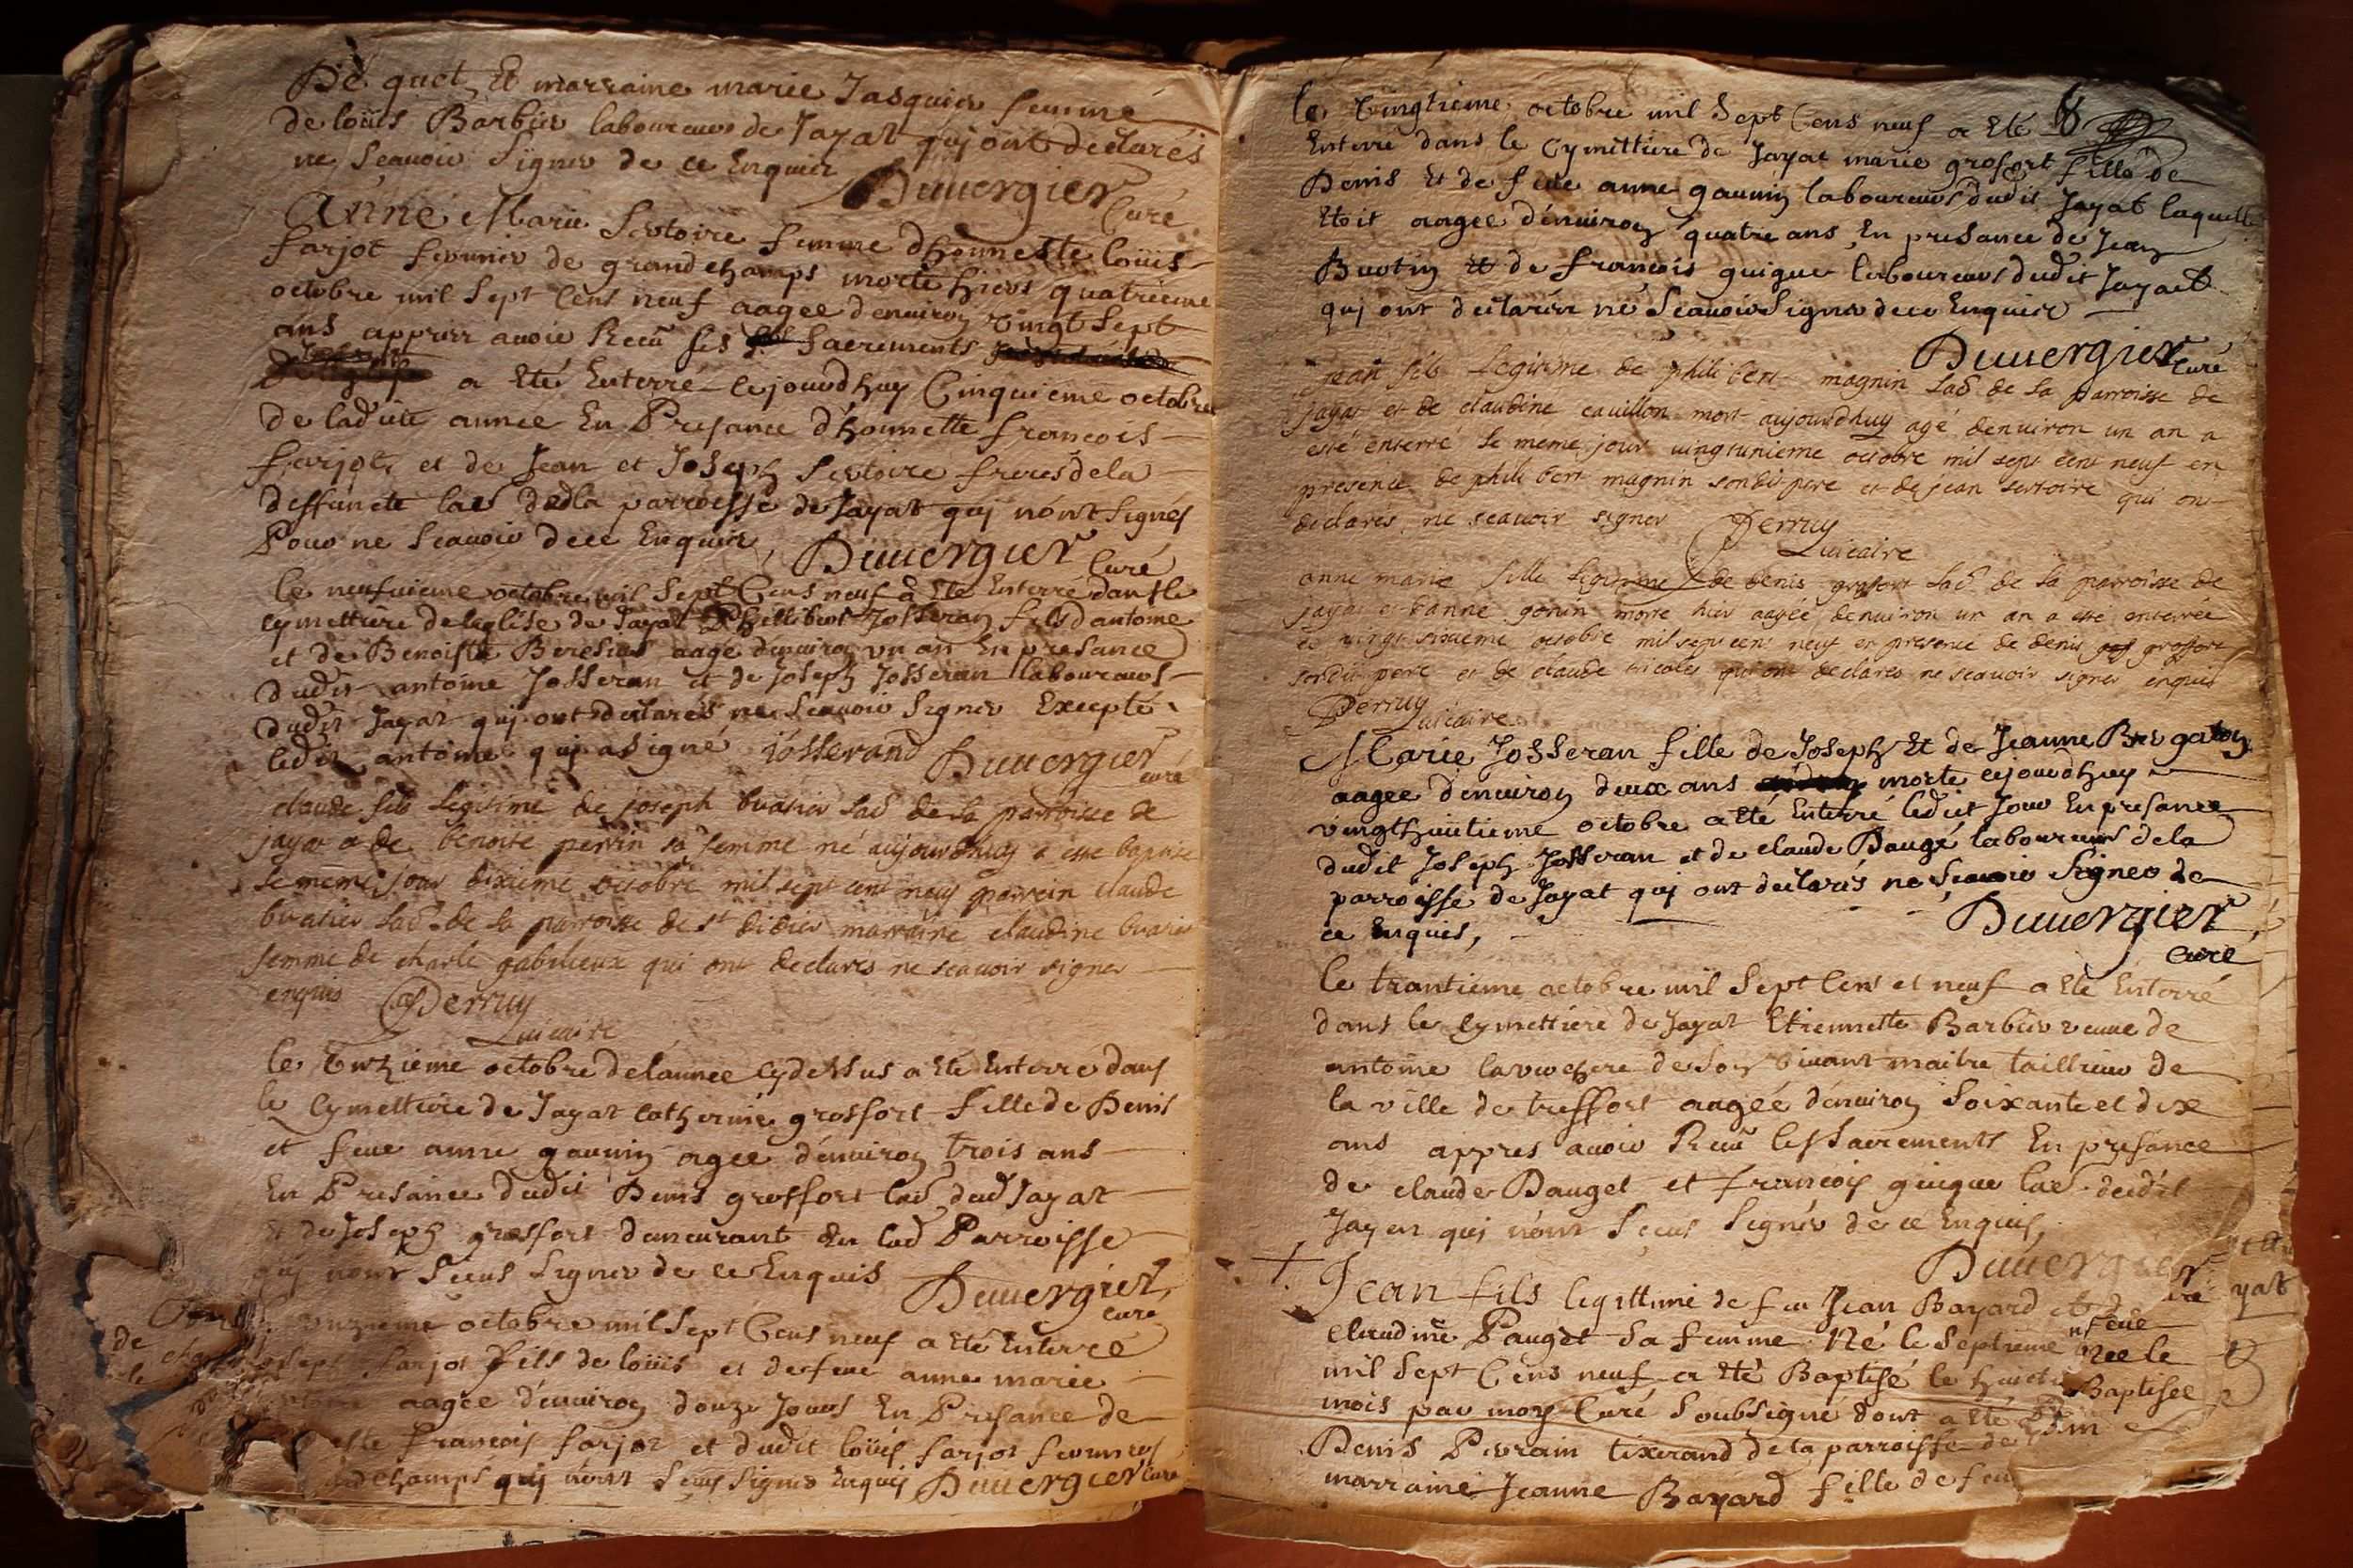 De quet, Et marraine marie Jasquier femme
de loüis Barbier laboureur de Jayat quj ont declarés
ne scauoir signer de ce Enquier Duuergier Curé
Anne Marie Sertoire femme dhonneste loüis
farjot fermier de grandchamps morte hiers quatrieme
octobre mil sept Cens neuf aagee denuiron vingt sept
ans apprier auoir Receu ses Sacrements
a Eté Enterré cejourdhuy Cinquieme octobre
de ladite annee En Presance d'honnette francois
farjot, et de Jean et Joseph Sertoire freres de la
deffuncte lab de la parroisse de Jayat quj nont signés
Pour ne Scauoir de ce Enquier, Duuergier Curé
le neufuieme octobre mil sept Cens neuf a Eté Enterré dans le
cymettiere de leglise de Jayat Phillibert Josseran fils dantoine
et de Benoiste aagé denuiron vn an En presance
dudit antoine Josseran et de Joseph Josseran laboureurs
dudit Jayat quj ont declarés ne Scauoir Signer Excepté
ledit antoine quj a signé josserand Duuergier curé
claude fils legitime de joseph buatier lab de la parroisse de
jayat et de benoite perrin sa femme né aujourdhuy a esté baptisé
le meme jour dixieme octobre mil sept cent neuf parrein claude
buatier lab de la parroisse de st didier marraine claudine buatier
femme de charle gabilieux qui ont declarés ne scauoir signer
enquis Derruy vicaire
le Onzieme octobre de lannee cy dessus a Eté Enterré dans
le Cymettiere de Jayat Catherine grosfort fille de Denis
et feue anne gaunin agee d'enuiron trois ans
En Presance dudit Denis grosfort lab dud Jayat
et de Joseph grosfort demeurant En lad Parroisse
quj nont Sceus Signer de ce Enquis Duuergier, curé
onzieme octobre mil sept Cens neuf a Eté Enterré
Joseph farjot fils de loüis et de feue anne marie
aagée d'enuiron douze Jours En Presance de
francois farjot et dudit loüis farjot fermiers
de champs quj nont Sceus Signer Enquis Duuergier curé
le vingtieme octobre mil Sept Cens neuf a Eté
Enterré dans le Cymettiere de Jayat marie grosfort fille de
Denis Et de feue anne gaunin laboureurs dudit Jayat laquelle
Etoit aagee d'enuiron quatre ans En presance de Jean
Buotin et de francois guigue laboureurs dudit Jayat
quj ont declarés ne Scauoir Signer de ce Enquier
Duuergier Curé
jean fils legitime de philibert magnin lab de la parroisse de
jayat et de claudine cauillon mort aujourdhuy agé denuiron un an a
esté enterré le meme jour uingtunieme octobre mil sept cent neuf en
presence de philibert magnin sondit pere et de jean sertoire qui ont
declarés ne scauoir signer Derruy vicaire
anne marie fille legitime de denis grosfort lab de la parroisse de
jayat et danne gonin morte hier aagée denuiron un an a esté enterrée
le uingt sixieme octobre mil sept cent neuf en presence de denis grosfort
sondit pere et de claude nicolas qui ont declarés ne scauoir signer enquis
Derruy vicaire
Marie Josseran fille de Joseph Et de Jeanne
aagee d'enuiron deux ans morte cejourdhuy
vingthuitieme octobre a Eté Enterré ledit Jour En presance
dudit Joseph Josseran et de claude Daugé laboureurs de la
parroisse de Jayat quj ont declarés ne Scauoir Signer de
ce Enquis, Duuergier, Curé
le trantieme octobre mil Sept Cens et neuf a Eté Enterré
dans le Cymettiere de Jayat Etiennette Barbier veuue de
antoine de son viuant maitre taillieur de
la ville de treffort aagée d'enuiron Soixante et dix
ans appres auoir Receu les Sacrements En presance
de claude Dauget et francois guigue lab dudit
Jayat quj nont Sceus Signer de ce Enquis,
Duuergier
Jean fils legittime de feu Jean Bayard et de
claudine Pauget Sa femme Né le Septieme
mil Sept Cens neuf a Eté Baptisé le
mois par moy Curé Soubsigné dont a Eté
Denis Perrain tixerand de la parroisse de
marraine Jeanne Bayard fille de feu
yat
feue
née le
Baptisee